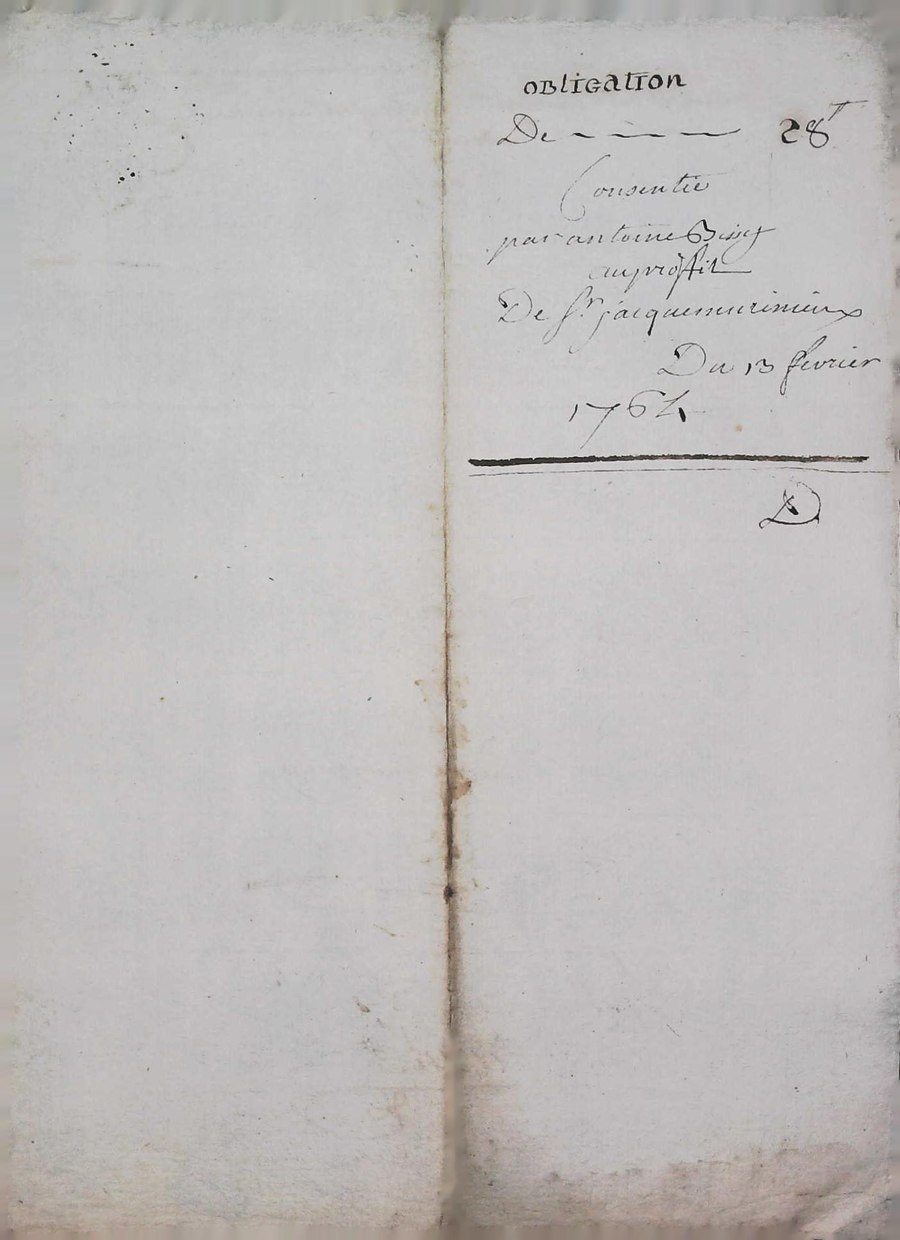 obligation
De 28 ₶
Consentie
par antoine
au proffit
De Sr. jacque
Du 13 fevrier
1764
D